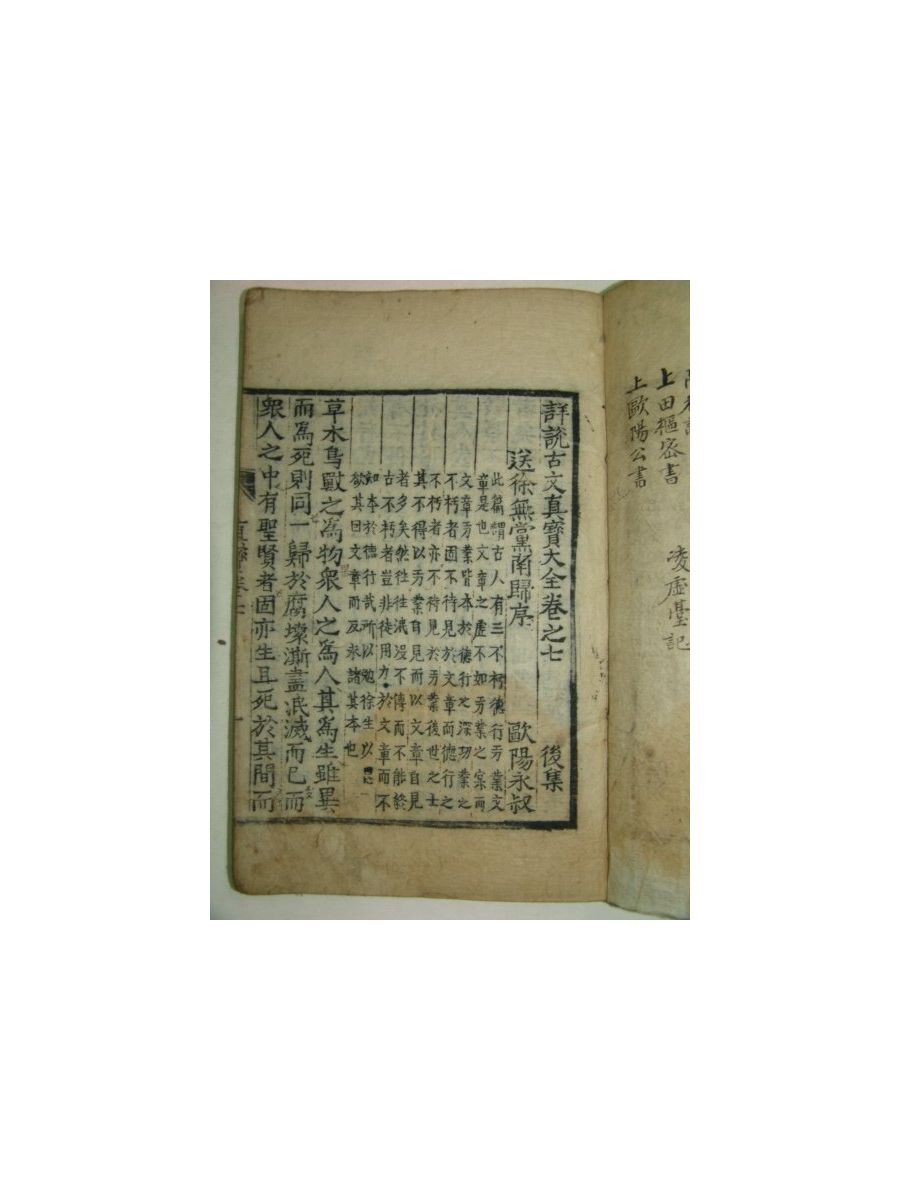 上田樞密書
上歐陽公書
凌虛臺記
詳說古文真寶大全卷之七 後集
送徐無黨南歸序 歐陽永叔
此篇謂古人有三不朽德行功業文
章是也文章之虛不如功業之實而
文章功業皆本於德行之深功業之
不朽者固不待見於文章而德行之
不朽者亦不待見於功業後世之士
其不得以功業自見而以文章自見
者多矣然往往泯沒不傳而不能終
古不朽者豈非徒用力於文章而不
知本於德行哉所以勉徐生以
欲其因文章而反求諸其本也
草木鳥獸之爲物衆人之爲人其爲生雖異
而爲死則同一歸於腐壞澌盡泯滅而已而
衆人之中有聖賢者固亦生且死於其間而